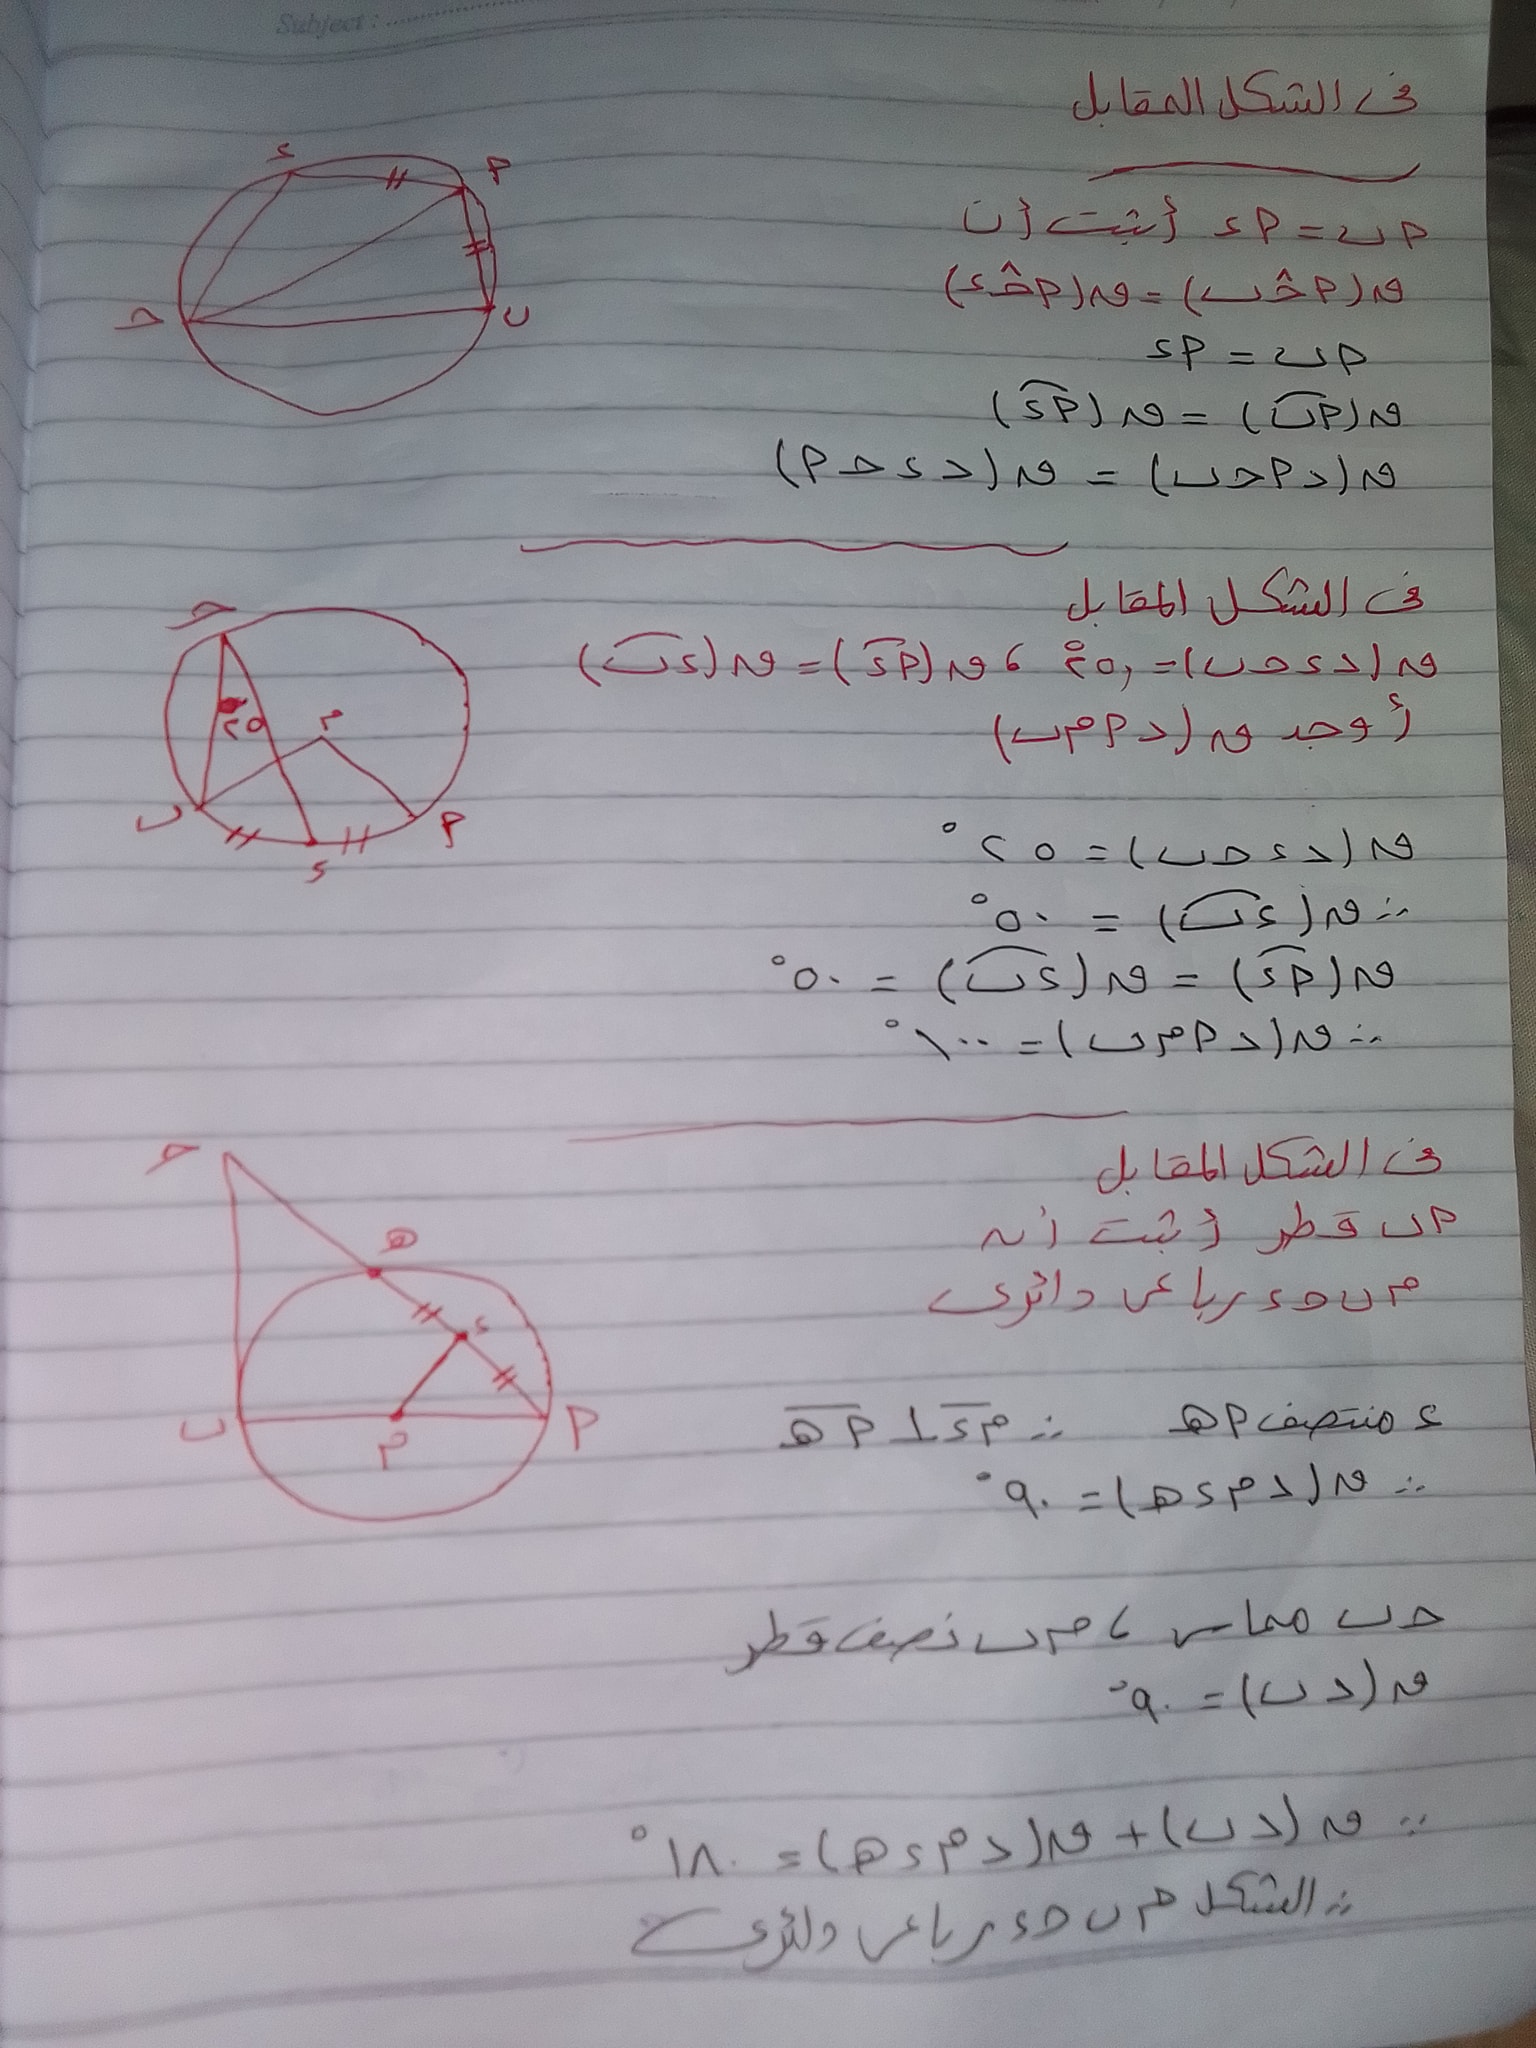 Subject :
فى الشكل المقابل
أب = أء أثبت أن
ق(أحَب) = ق(أحَء)
أب = أء
ق(أب) = ق(أء)
ق(د أحب) = ق(د ءحأ)
ء
أ
ب
ح
فى الشكل المقابل
ق(د ءحب) = ٢٥° ، ق(أء) = ق(ءب)
أوجد ق(د أمب)
ق(د ءحب) = ٢٥°
∴ ق(ءب) = ٥٠°
ق(أء) = ق(ءب) = ٥٠°
∴ ق(د أمب) = ١٠٠°
ح
٢٥
م
ب
ء
أ
فى الشكل المقابل
أب قطر أثبت أن
م ب ح ء رباعى دائرى
ء منتصف أهـ ∴ مء ⊥ أهـ
∴ ق(د مءهـ) = ٩٠°
حب مماس ، مب نصف قطر
ق(د ب) = ٩٠°
∴ ق(د ب) + ق(د مءهـ) = ١٨٠°
∴ الشكل م ب ح ء رباعى دائرى
ح
هـ
ء
ب
م
أ